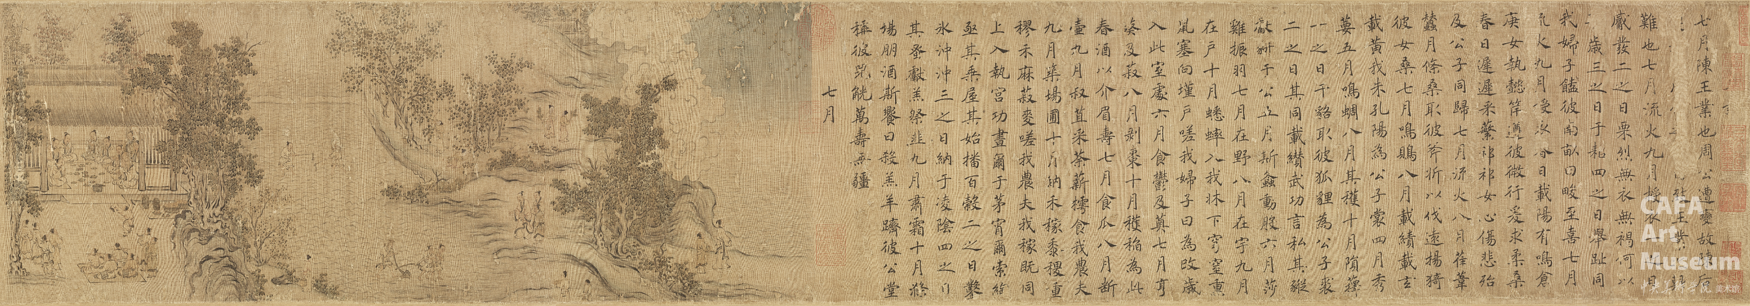 七月陳王業也周公遭變故陳
致王業
難也七月流火九月授衣一之日
觱發二之日栗烈無衣無褐何以
歲三之日于耜四之日舉趾同
我婦子饁彼南畝田畯至喜七月
流火九月授衣春日載陽有鳴倉
庚女執懿筐遵彼微行爰求柔桑
春日遲遲采蘩祁祁女心傷悲殆
及公子同歸七月流火八月萑葦
蠶月條桑取彼斧斨以伐遠揚猗
彼女桑七月鳴鵙八月載績載玄
載黃我朱孔陽為公子裳四月秀
葽五月鳴蜩八月其穫十月隕蘀
一之日于貉取彼狐狸為公子裘
二之日其同載纘武功言私其豵
獻豜于公五月斯螽動股六月莎
雞振羽七月在野八月在宇九月
在戶十月蟋蟀入我牀下穹窒熏
鼠塞向墐戶嗟我婦子曰為改歲
入此室處六月食鬱及薁七月亨
葵及菽八月剝棗十月穫稻為此
春酒以介眉壽七月食瓜八月斷
壺九月叔苴采荼薪樗食我農夫
九月築場圃十月納禾稼黍稷重
穋禾麻菽麥嗟我農夫我稼既同
上入執宮功晝爾于茅宵爾索綯
亟其乘屋其始播百穀二之日鑿
冰沖沖三之日納于凌陰四之日
其蚤獻羔祭韭九月肅霜十月滌
場朋酒斯饗曰殺羔羊躋彼公堂
稱彼兕觥萬壽無疆
七月
CAFA
Art
Museum
中央美術學院美术馆